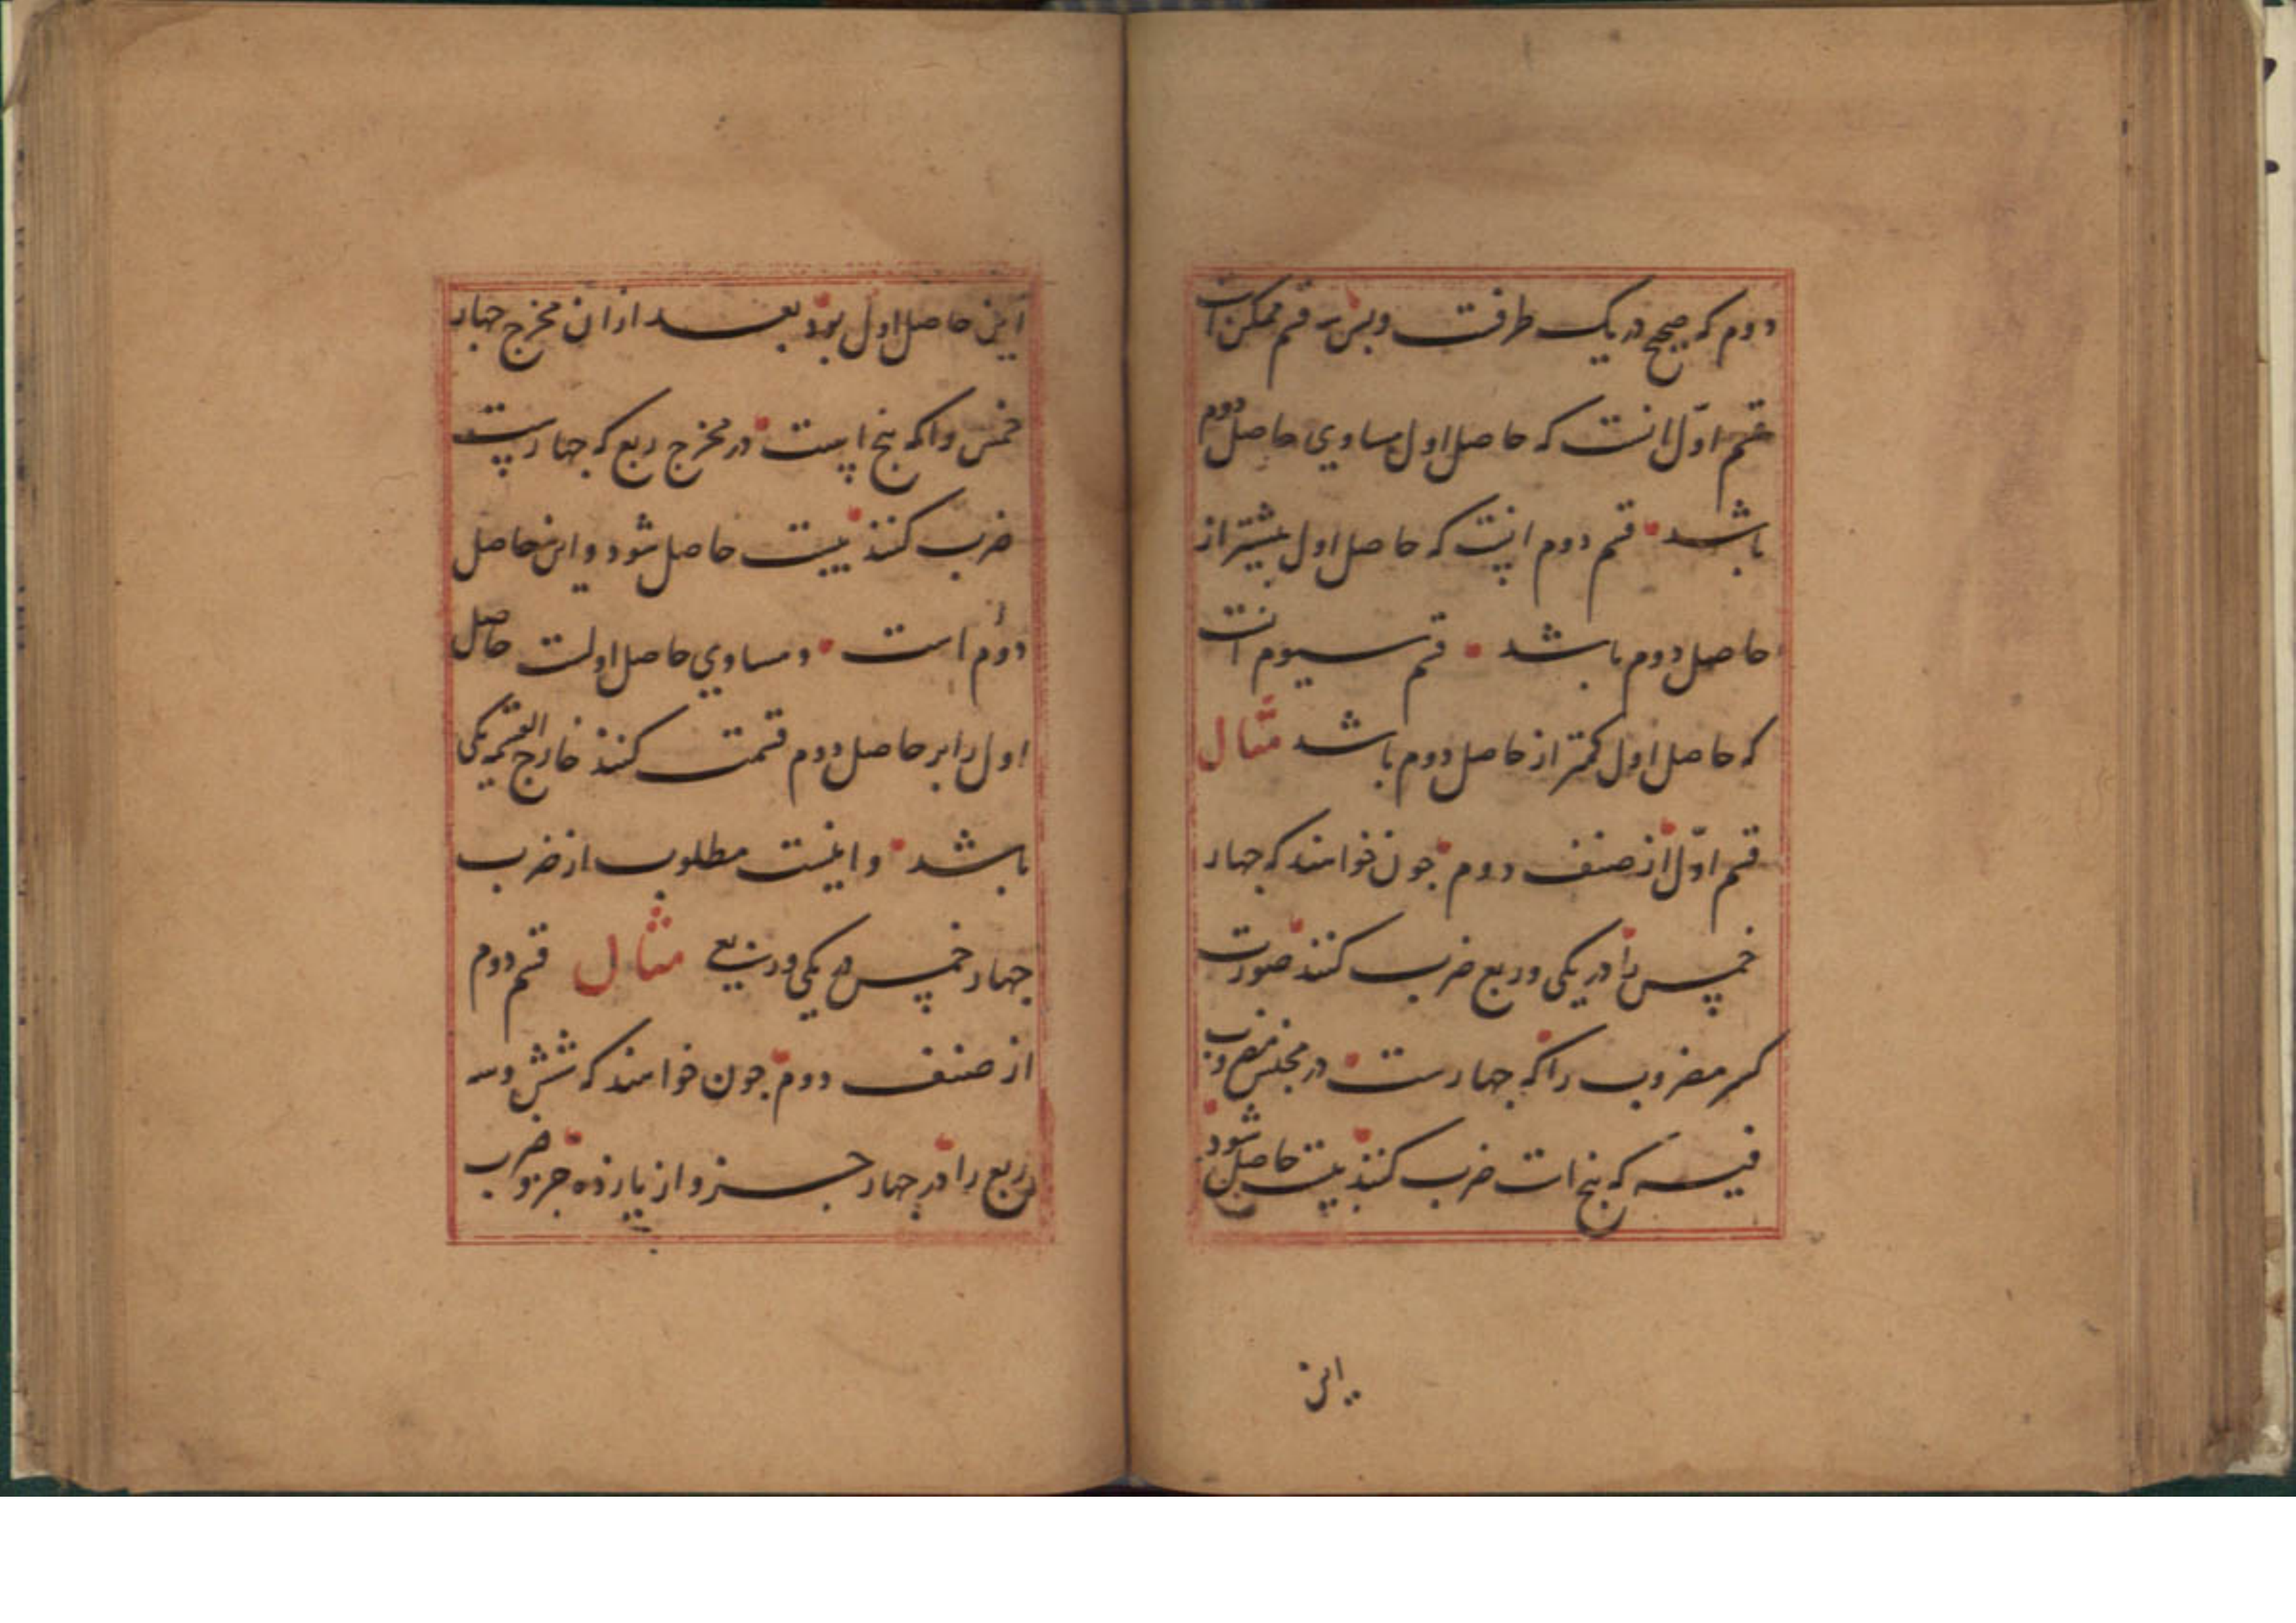 دوم که صحیح در یک طرفست و بس سه قسم ممکن است
قسم اوّل آنست که حاصل اول مساوی حاصل دوم
باشد قسم دوم آنست که حاصل اول بیشتر از
حاصل دوم باشد قسم سیوم آنست
که حاصل اول کمتر از حاصل دوم باشد مثال
قسم اوّل از صنف دوم جون خواهند که جهار
خمس را در یکی و ربع ضرب کنند صورت
کسر مضروب را که جهارست در مجنس مضروب
فیه که بنج است ضرب کنند بیست حاصل شود
این
این حاصل اول بود بعد از ان مخرج جهار
خمس را که بنج است در مخرج ربع که جهارست
ضرب کنند بیست حاصل شود و این حاصل
دوم است و مساوی حاصل اولست حاصل
اول را بر حاصل دوم قسمت کنند خارج القسمه یکی
باشد و اینست مطلوب از ضرب
جهار خمس در یکی و ربع مثال قسم دوم
از صنف دوم جون خواهند که شش و سه
ربع را در جهار جزو از یازده جزو ضرب